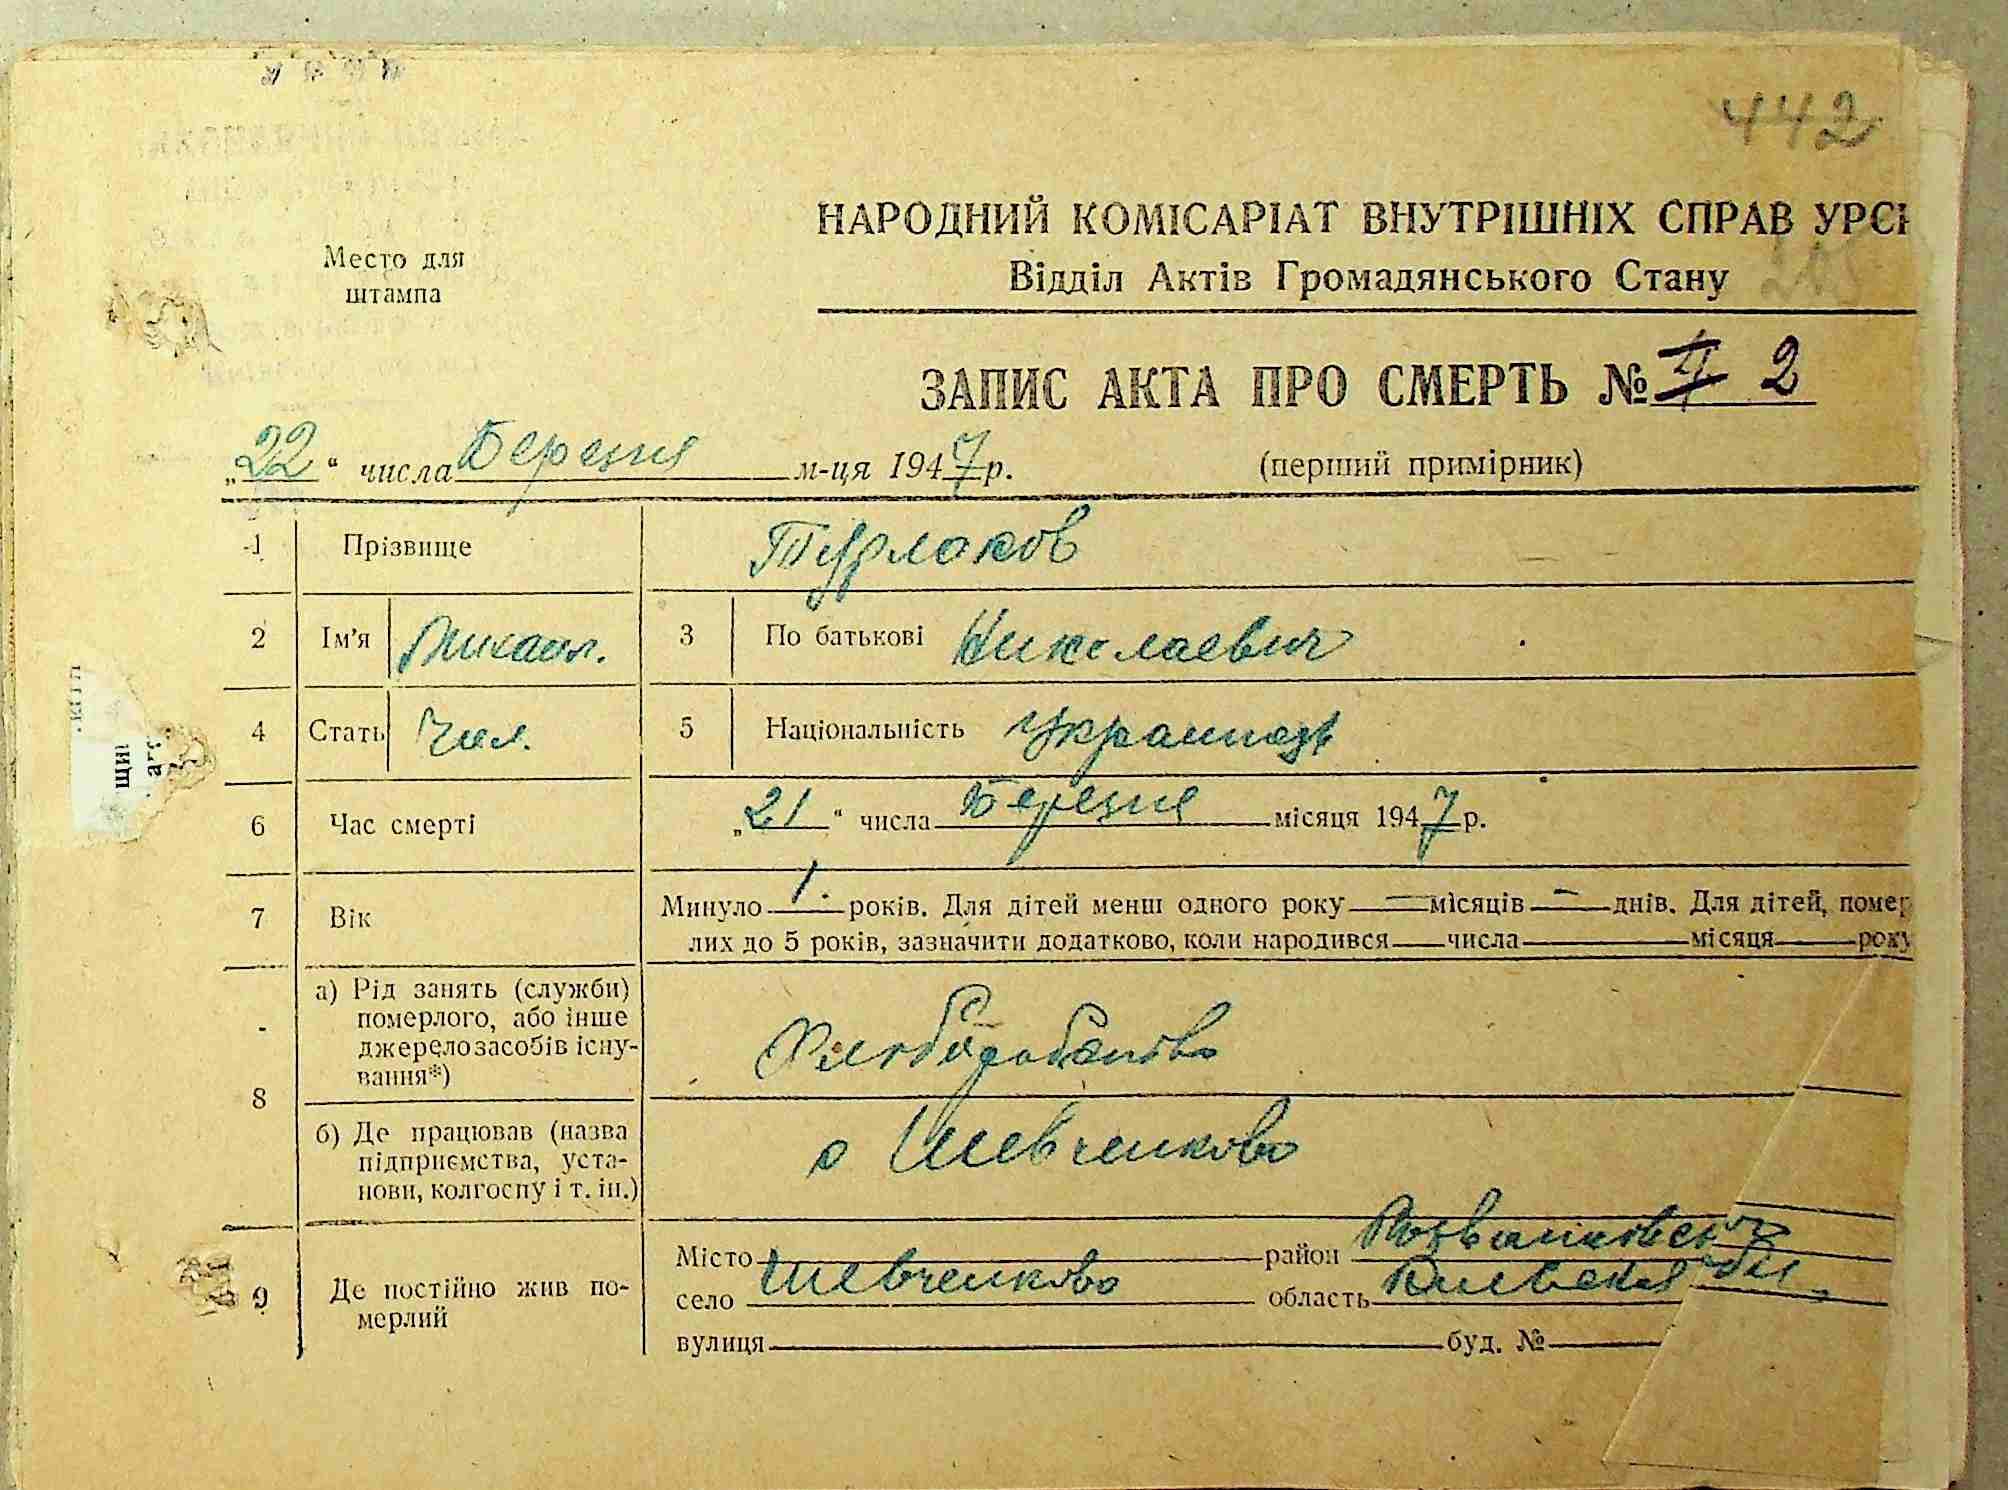 442
НАРОДНИЙ КОМІСАРІАТ ВНУТРІШНІХ СПРАВ УРСР
Место для штампа
Відділ Актів Громадянського Стану
ЗАПИС АКТА ПРО СМЕРТЬ № 2
„22“ числа Березня м-ця 1947 р. (перший примірник)
1 Прізвище Турлаков
2 Ім'я Михаил. 3 По батькові Николаевич
4 Стать Чол. 5 Національність украинец
6 Час смерті „21“ числа Березня місяця 1947 р.
7 Вік Минуло 1. років. Для дітей менш одного року — місяців — днів. Для дітей, помер
лих до 5 років, зазначити додатково, коли народився числа місяця року
8 а) Рід занять (служби)
померлого, або інше
джерело засобів існу-
вання*)
б) Де працював (назва
підприємства, уста-
нови, колгоспу і т. ін.)
с Шевченково
9 Де постійно жив по-
мерлий
Місто район
село Шевченково область Киевская
вулиця буд. №